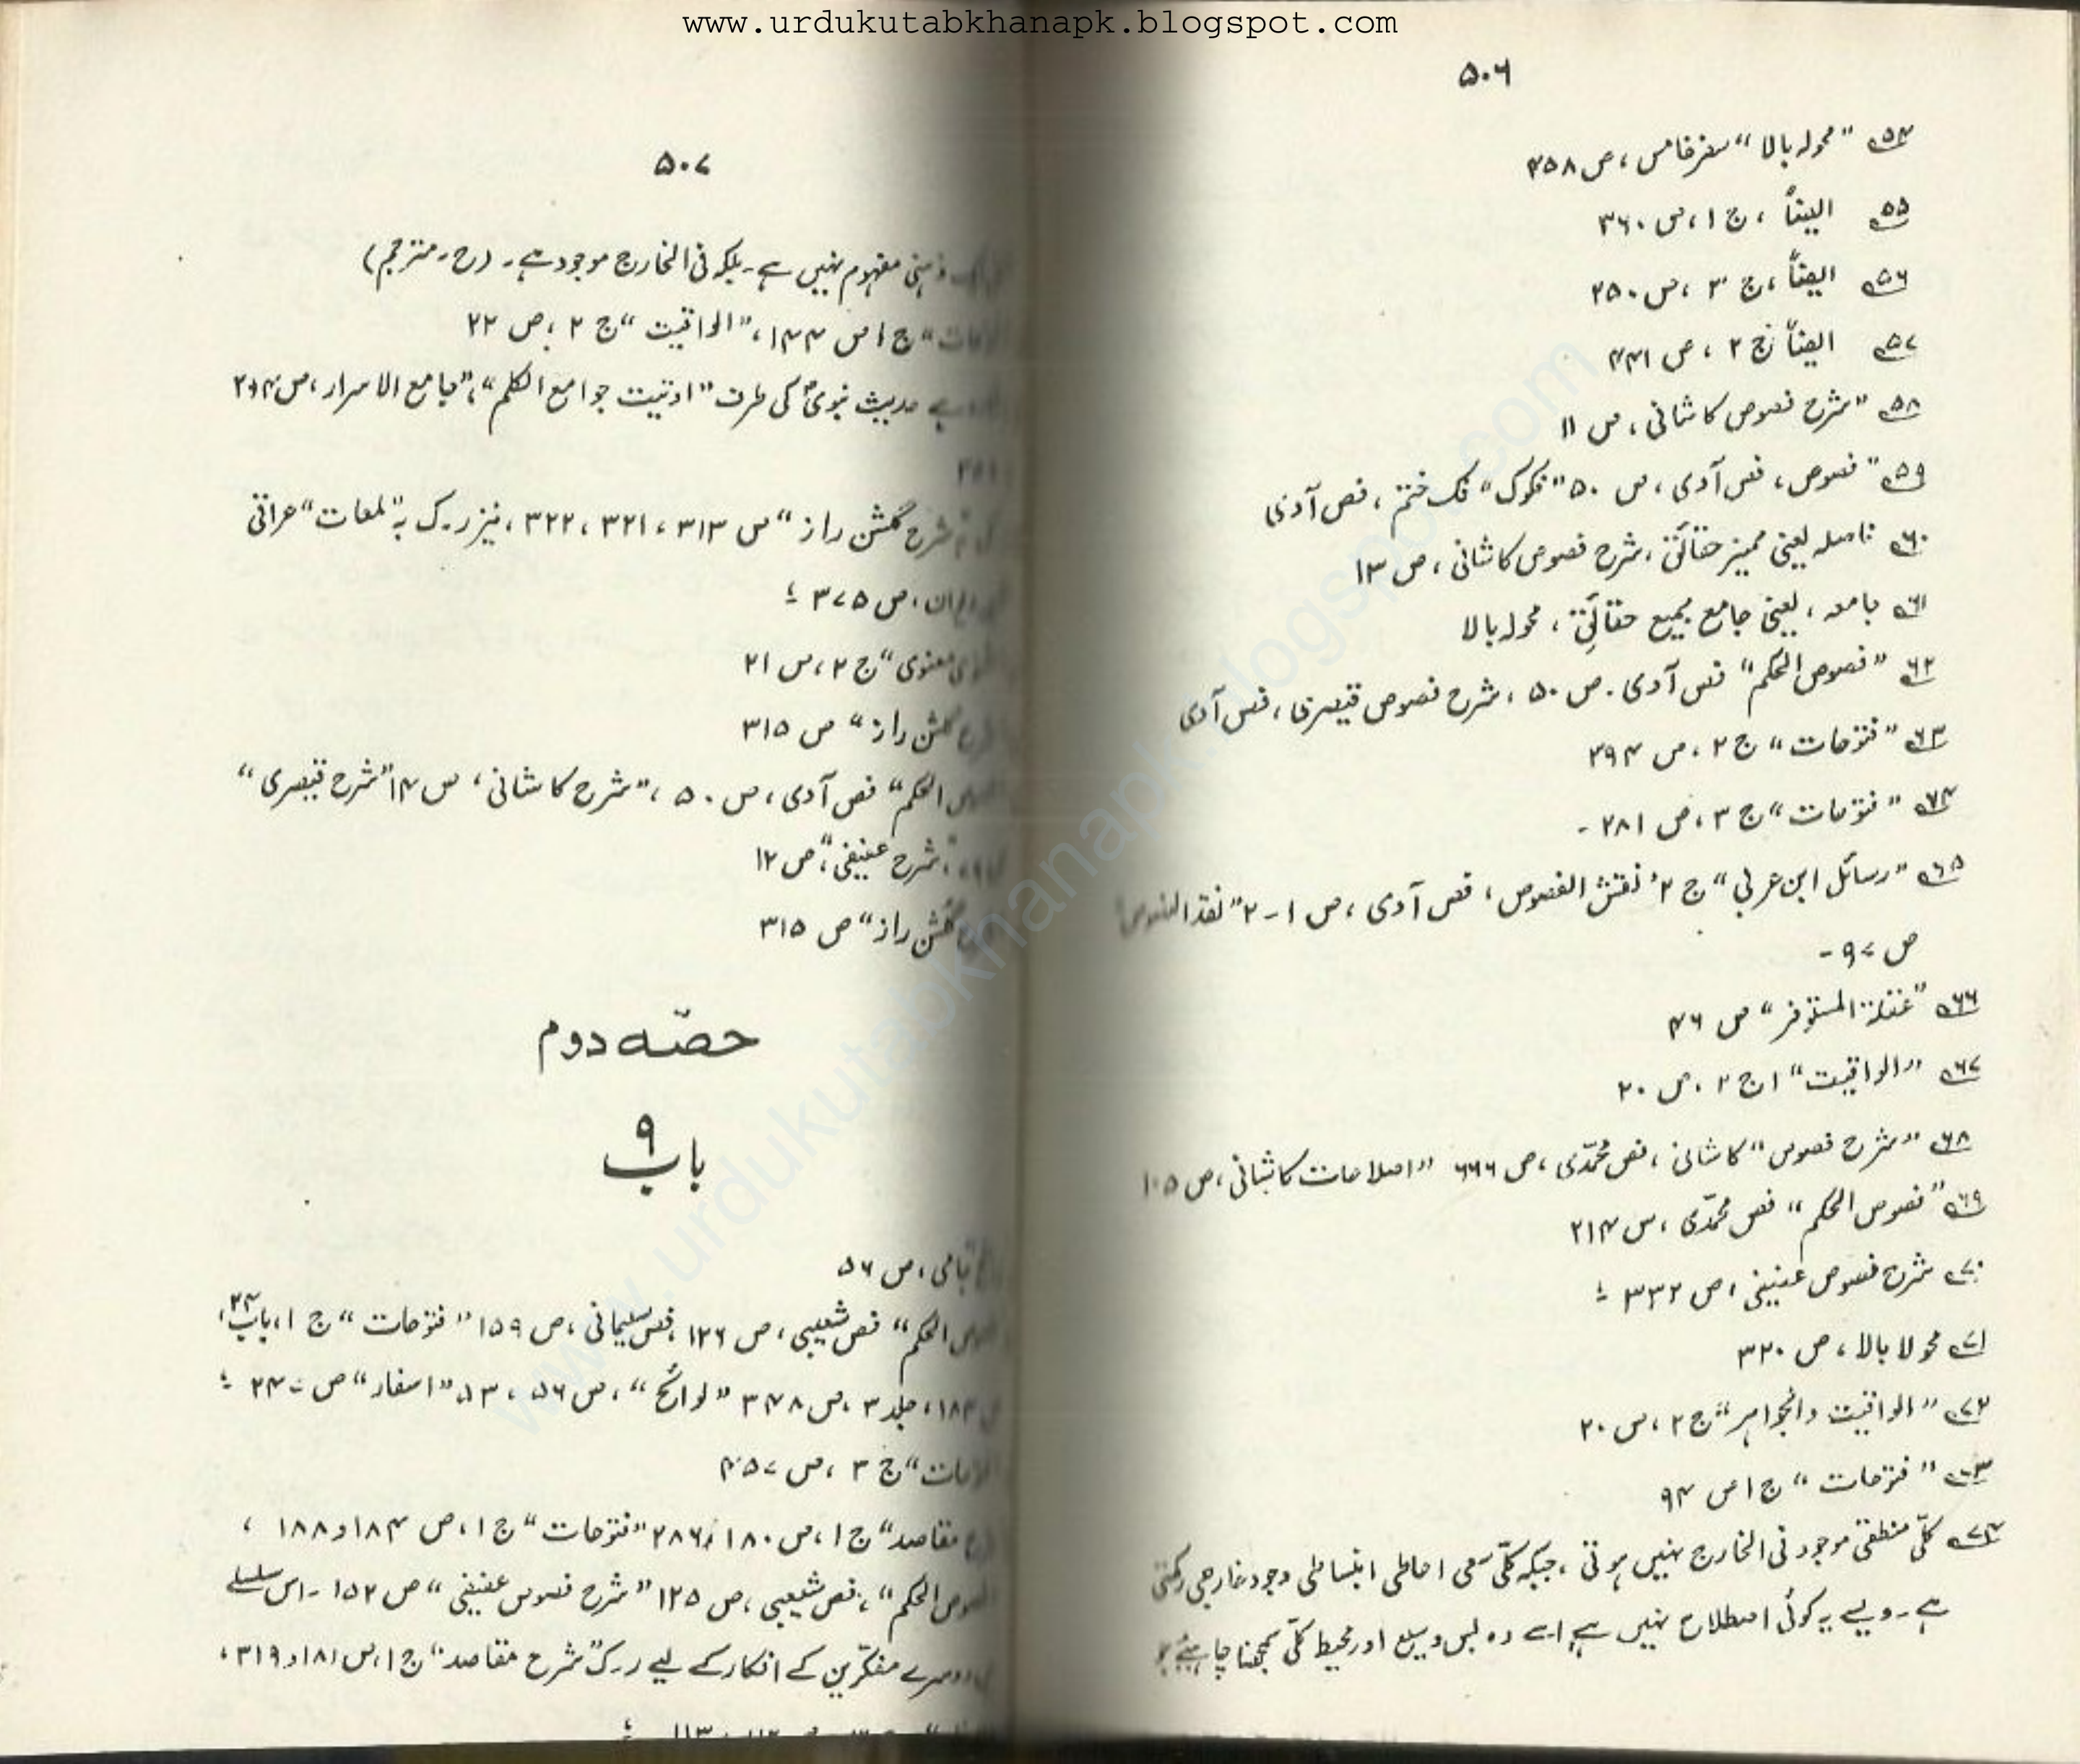 www.urdukutabkhanapk.blogspot.com
۵۰۶
۵۴ "محولہ بالا" سفرخامس، ص ۴۵۸
۵۵ ایضاً، ج ۱، ص ۳۶۰
۵۶ ایضاً، ج ۳، ص ۲۵۰
۵۷ ایضاً ج ۲، ص ۴۴۱
۵۸ "شرح فصوص کاشانی، ص ۱۱
۵۹ "فصوص، فص آدمی، ص ۵۰ "فکوک" فک ختم، فص آدمی
۶۰ فاصلہ یعنی ممیز حقائق، شرح فصوص کاشانی، ص ۱۳
۶۱ جامعہ، یعنی جامع جمیع حقائق، محولہ بالا
۶۲ "فصوص الحکم" فص آدمی۔ ص ۵۰، شرح فصوص قیصری، فص آدمی
۶۳ "فتوحات" ج ۲، ص ۳۹۴
۶۴ "فتوحات" ج ۳، ص ۲۸۱۔
۶۵ "رسائل ابن عربی" ج ۲، نقش الفصوص، فص آدمی، ص ۱-۲ "نقد النصوص"
ص ۹۷۔
۶۶ "عقلة المستوفز" ص ۴۶
۶۷ "الیواقیت" ج ۲، ص ۲۰
۶۸ "شرح فصوص" کاشانی، فص محمّدی، ص ۶۶۶ "اصطلاحات کاشانی، ص ۱۰۵
۶۹ "فصوص الحکم" فص محمّدی، ص ۲۱۴
۷۰ شرح فصوص عفیفی، ص ۳۳۲
۷۱ محولا بالا، ص ۳۲۰
۷۲ "الیواقیت والجواہر" ج ۲، ص ۲۰
۷۳ "فتوحات" ج ۱ ص ۹۴
۷۴ کلّی منطقی موجود فی الخارج نہیں ہوتی، جبکہ کلّی سعی احاطی انبساطی وجود خارجی رکھتی
ہے۔ ویسے یہ کوئی اصطلاح نہیں ہے اسے وہ بس وسیع اور محیط کلّی سمجھنا چاہیئے
۵۰۷
ذہنی مفہوم نہیں ہے۔ بلکہ فی الخارج موجود ہے۔ (ح۔ مترجم)
ج ۱ ص ۱۴۴، "الیواقیت" ج ۲، ص ۲۲
حدیث نبویؐ کی طرف "اوتیت جوامع الکلم"، "جامع الاسرار، ص
شرح گلشن راز" ص ۳۱۳، ۳۲۱، ۳۲۲، نیز ر۔ک بہ "لمعات" عراقی
ص ۳۷۵
معنوی" ج ۲، ص ۲۱
گلشن راز" ص ۳۱۵
الحکم" فص آدمی، ص ۵۰، "شرح کاشانی، ص ۱۴ "شرح قیصری"
"شرح عفیفی"، ص ۱۲
گلشن راز" ص ۳۱۵
حصّہ دوم
باب ۹
جامی، ص ۵۶
الحکم" فص شعیبی، ص ۱۲۶، فص سلیمانی، ص ۱۵۹ "فتوحات" ج ۱، باب ۲۴،
جلد ۳، ص ۳۴۸ "لوائح"، ص ۵۶، ۵۳ "اسفار" ص
ج ۳، ص ۴۵۷
مقاصد" ج ۱، ص ۱۸۰، ۲۸۶ "فتوحات" ج ۱، ص ۱۸۴ و ۱۸۸،
الحکم"، فص شعیبی، ص ۱۲۵ "شرح فصوص عفیفی" ص ۱۵۲۔ اس سلسلے
دوسرے مفکّرین کے افکار کے لیے ر۔ک "شرح مقاصد" ج ۱، ص ۱۸۱ و ۳۱۹،
www.urdukutabkhanapk.blogspot.com